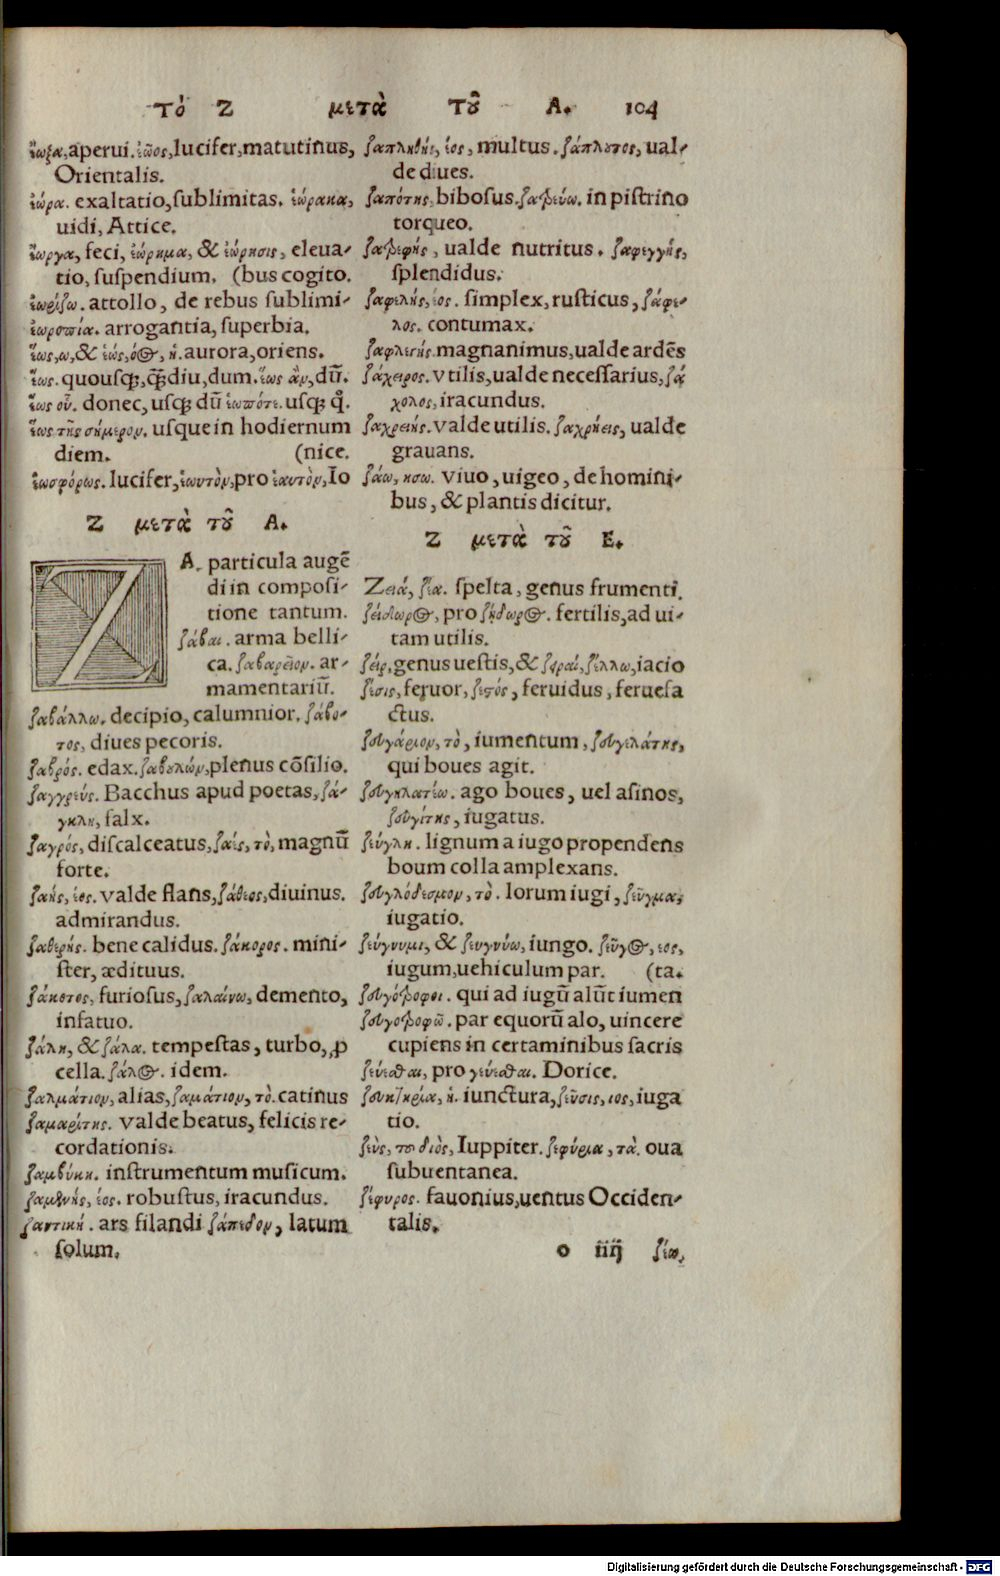 τὸ Ζ μετὰ τοῦ Α. 104
ἔωξα, aperui. ἑῶος, lucifer, matutinus,
Orientalis.
ἐώρα. exaltatio, sublimitas. ἑώρακα,
uidi, Attice.
ἔωργα, feci, ἐώρημα, & ἐώρησις, eleua-
tio, suspendium. (bus cogito.
ἐωρίζω. attollo, de rebus sublimi-
ἐωροπία. arrogantia, superbia.
ἕως, ω, & ἑώς, ὁ@, ἡ. aurora, oriens.
ἕως. quousq;, q̃diu, dum. ἕως ἂν, dū.
ἕως οὗ. donec, usq; dū ἑωπότε. usq; q̊.
ἕως τῆς σήμερον. usque in hodiernum
diem. (nice.
ἑωσφόρως. lucifer, ἑωυτὸν, pro ἑαυτὸν, Io
Ζ μετὰ τοῦ Α.
ZA. particula augē
di in composi-
tione tantum.
ζάβαι. arma belli-
ca. ζαβαρεῖον. ar-
mamentariū.
ζαβάλλω. decipio, calumnior. ζάβο-
τος, diues pecoris.
ζαβρός. edax. ζαβουλών, plenus cōsilio.
ζαγγρεύς. Bacchus apud poetas, ζά-
γκλη, falx.
ζαγρός, discalceatus, ζαΐς, τὸ, magnū
forte.
ζαής, έος. valde flans, ζάθεος, diuinus.
admirandus.
ζαθερής. bene calidus. ζάκορος. mini-
ster, ædituus.
ζάκοτος, furiosus, ζαλαίνω, demento,
infatuo.
ζάλη, & ζάλα. tempestas, turbo, ꝓ
cella. ζάλ@. idem.
ζαλμάτιον, alias, ζαμάτιον, τὸ. catinus
ζαμαρίτης. valde beatus, felicis re-
cordationis.
ζαμβύκη. instrumentum musicum.
ζαμενής, έος. robustus, iracundus.
ζαντική. ars filandi ζάπεδον, latum
solum.
ζαπληθής, έος, multus. ζάπλουτος, ual-
de diues.
ζαπότης, bibosus. ζατρεύω. in pistrino
torqueo.
ζατρεφής, ualde nutritus. ζαφεγγής,
splendidus.
ζαφελής, έος. simplex, rusticus, ζάφε-
λος. contumax.
ζαφλεγής. magnanimus, ualde ardēs
ζάχειρος. vtilis, ualde necessarius, ζά
χολος, iracundus.
ζαχρειής. valde utilis. ζαχρήεις, ualde
grauans.
ζάω, ησω. viuo, uigeo, de homini-
bus, & plantis dicitur.
Ζ μετὰ τοῦ Ε.
Ζειά, ζία. spelta, genus frumenti.
ζείδωρ@, pro ζήδωρ@. fertilis, ad ui-
tam utilis.
ζείρ, genus uestis, & ζειραί, ζέλλω, iacio
ζέσις, feruor, ζεστός, feruidus, feruefa
ctus.
ζευγάριον, τὸ, iumentum, ζευγελάτης,
qui boues agit.
ζευγηλατέω. ago boues, uel asinos,
ζευγίτης, iugatus.
ζεύγλη. lignum a iugo propendens
boum colla amplexans.
ζευγλόδεσμον, τὸ. lorum iugi, ζεῦγμα,
iugatio.
ζεύγνυμι, & ζευγνύω, iungo. ζεῦγ@, εος,
iugum, uehiculum par. (ta.
ζευγότροφοι. qui ad iugū alūt iumen
ζευγοτροφῶ. par equorū alo, uincere
cupiens in certaminibus sacris
ζεύεσθαι, pro γεύεσθαι. Dorice.
ζευκτηρία, ἡ. iunctura, ζεῦσις, ιος, iuga
tio.
ζεὺς, τοῦ διὸς, Iuppiter. ζεφύρια, τὰ. oua
subuentanea.
ζέφυρος. fauonius, uentus Occiden-
talis.
o iiij ζέω,
Digitalisierung gefördert durch die Deutsche Forschungsgemeinschaft - DFG